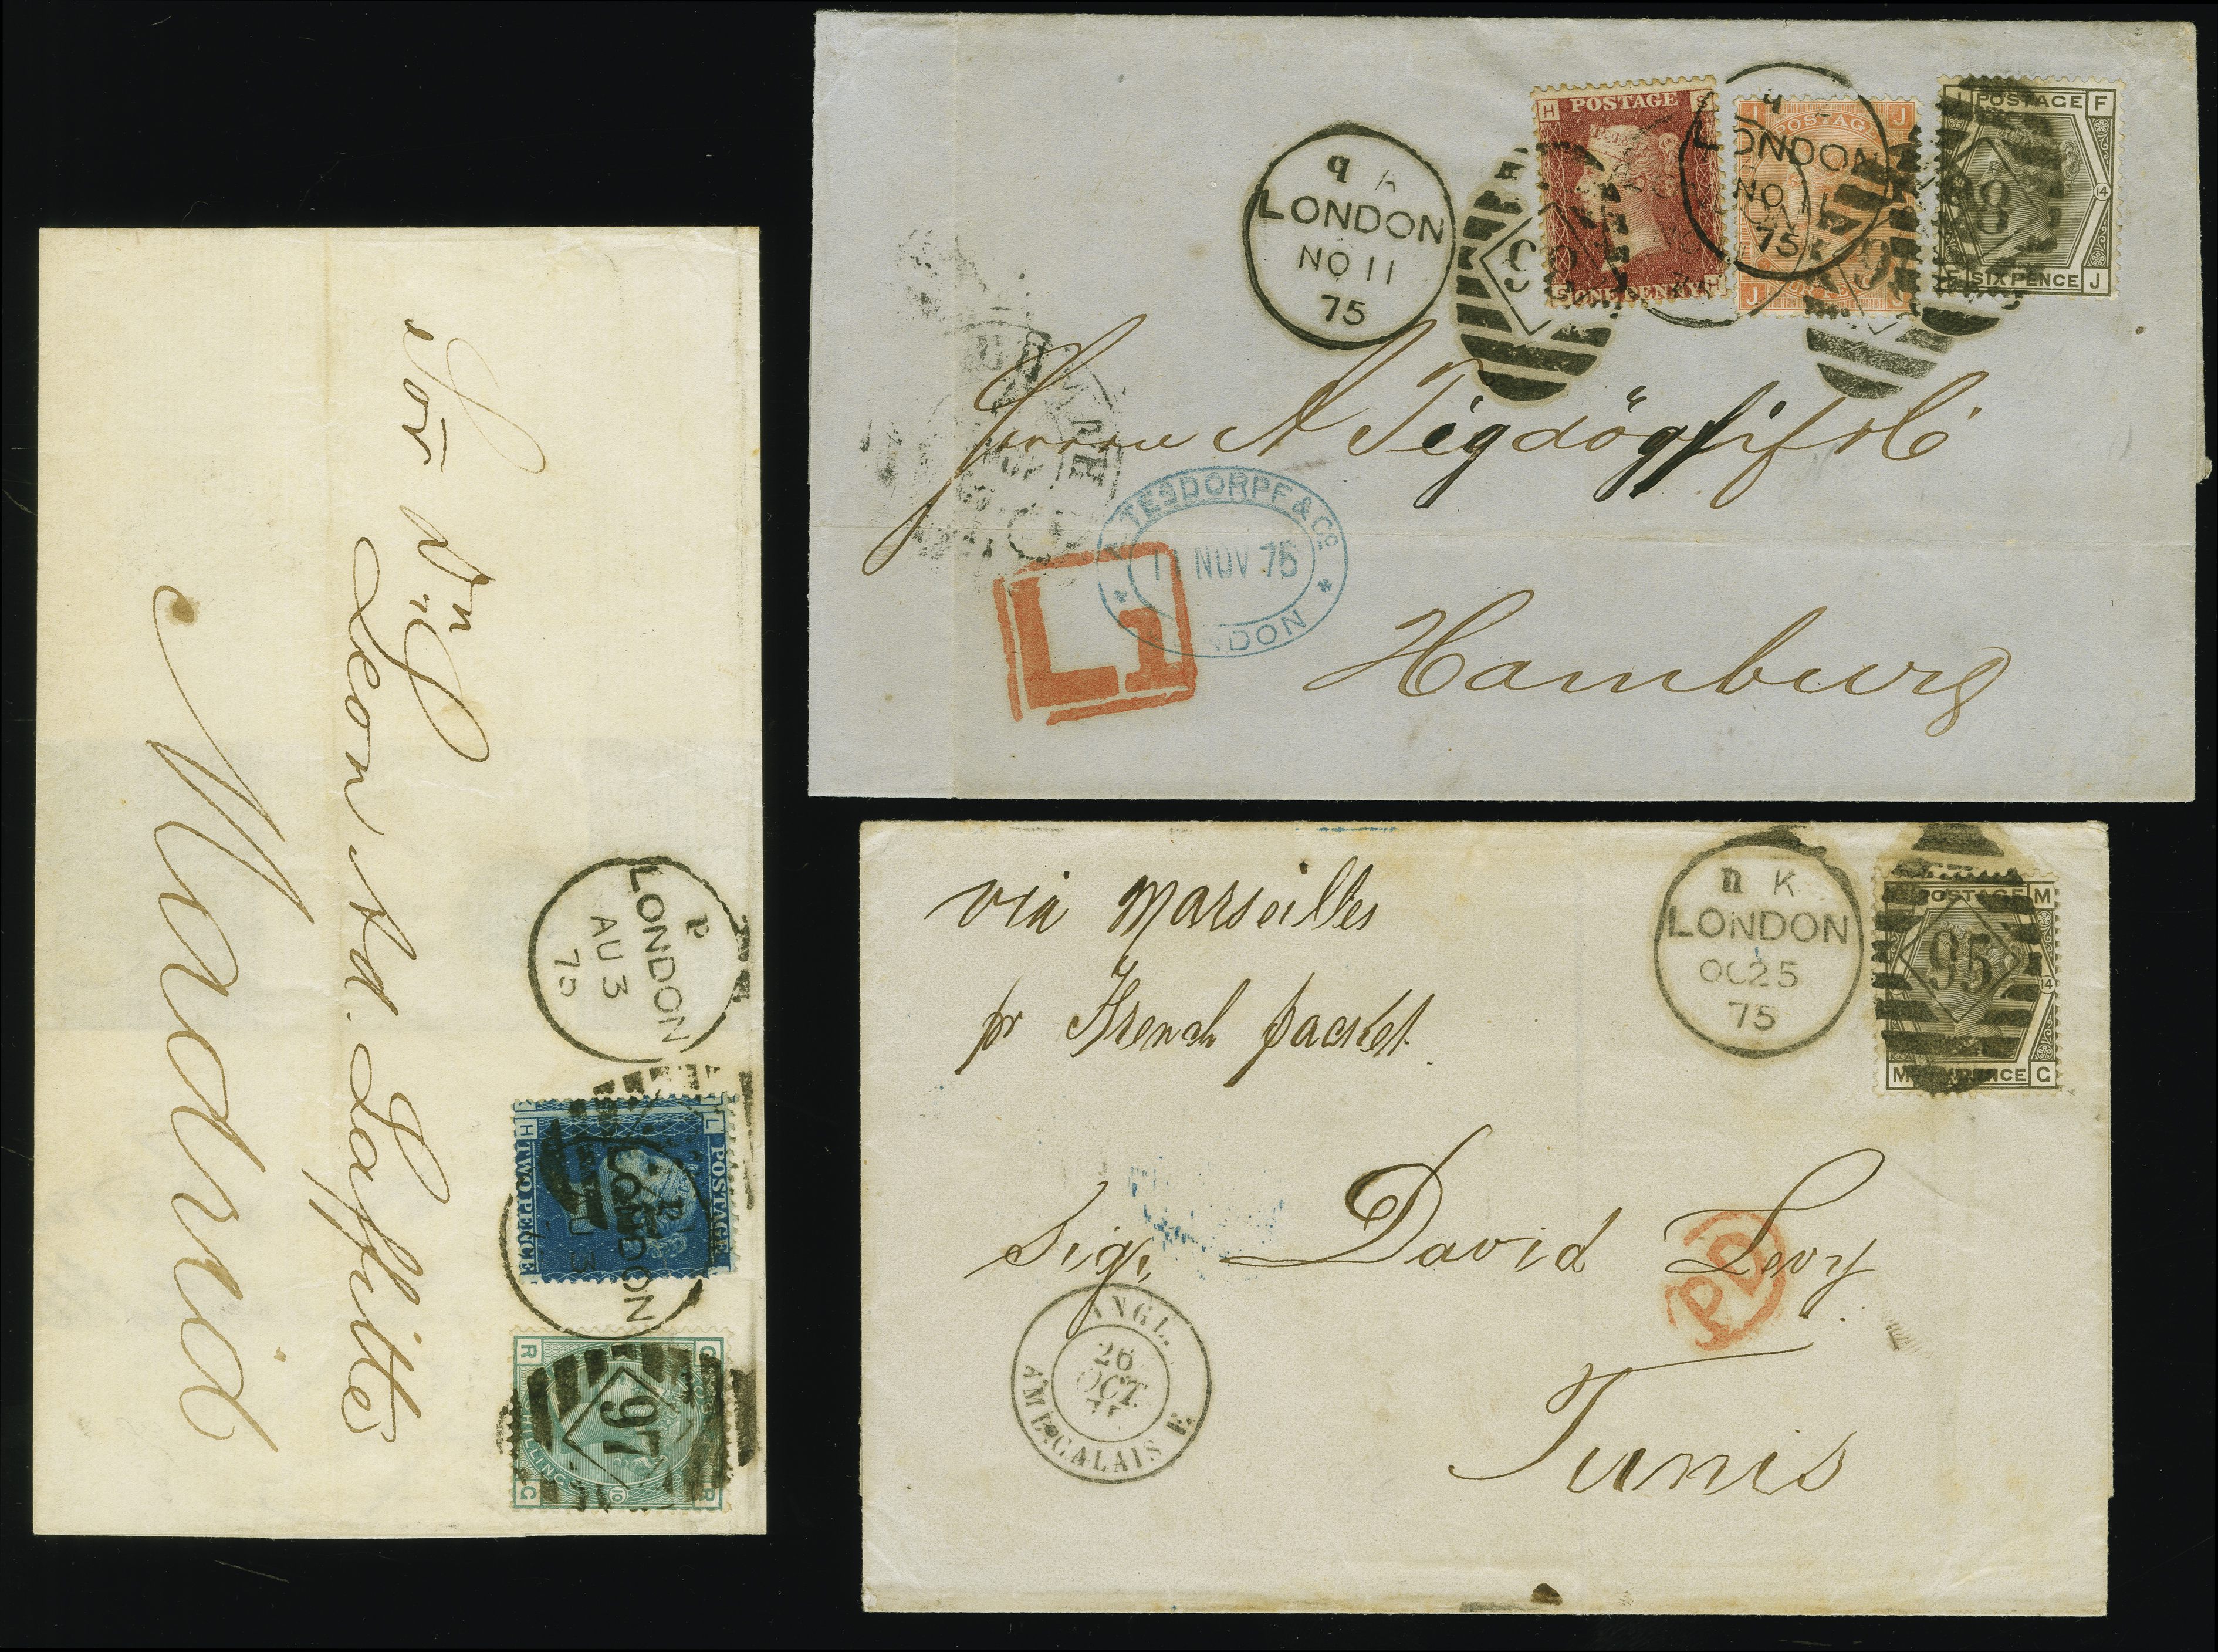 Sor Dn
Leon Ad. Laffitte
Madrid
P
LONDON
AU 3
75
POSTAGE
L
H
TWO PENCE
P
LONDON
AU 3
R
C
97
SHILLING
10
C
R
q A
LONDON
NO 11
75
H
POSTAGE
S
S
ONE PENNY
H
q
LONDON
NO 11
75
J
POSTAGE
J
J
9
POSTAGE
F
98
14
F
SIX PENCE
J
Hamburg
TESDORPF & Co.
11 NOV 75
L1
via Marseilles
pr French packet
n K
LONDON
OC 25
75
POSTAGE
M
95
14
M
G
Sigr. David Levy
Tunis
PD
ANGL.
26
OCT.
AMB. CALAIS E